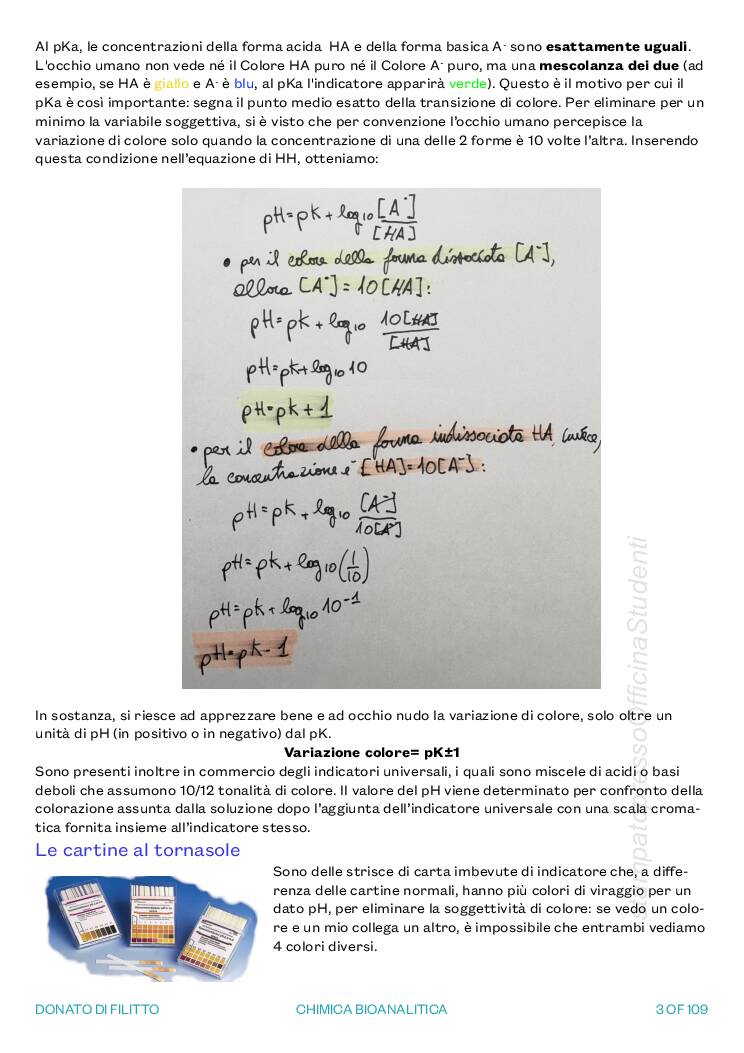 Al pKa, le concentrazioni della forma acida HA e della forma basica A⁻ sono esattamente uguali.
L'occhio umano non vede né il Colore HA puro né il Colore A⁻ puro, ma una mescolanza dei due (ad
esempio, se HA è giallo e A⁻ è blu, al pKa l'indicatore apparirà verde). Questo è il motivo per cui il
pKa è così importante: segna il punto medio esatto della transizione di colore. Per eliminare per un
minimo la variabile soggettiva, si è visto che per convenzione l'occhio umano percepisce la
variazione di colore solo quando la concentrazione di una delle 2 forme è 10 volte l'altra. Inserendo
questa condizione nell'equazione di HH, otteniamo:
pH=pK+log10 [A⁻]/[HA]
• per il colore della forma dissociata [A⁻],
allora [A⁻]=10[HA]:
pH=pK+log10 10[HA]/[HA]
pH=pK+log10 10
pH=pK+1
• per il colore della forma indissociata HA, invece,
la concentrazione è [HA]=10[A⁻]:
pH=pK+log10 [A⁻]/10[A⁻]
pH=pK+log10(1/10)
pH=pK+log10 10⁻¹
pH=pK-1
In sostanza, si riesce ad apprezzare bene e ad occhio nudo la variazione di colore, solo oltre un
unità di pH (in positivo o in negativo) dal pK.
Variazione colore= pK±1
Sono presenti inoltre in commercio degli indicatori universali, i quali sono miscele di acidi o basi
deboli che assumono 10/12 tonalità di colore. Il valore del pH viene determinato per confronto della
colorazione assunta dalla soluzione dopo l'aggiunta dell'indicatore universale con una scala croma-
tica fornita insieme all'indicatore stesso.
Le cartine al tornasole
Sono delle strisce di carta imbevute di indicatore che, a diffe-
renza delle cartine normali, hanno più colori di viraggio per un
dato pH, per eliminare la soggettività di colore: se vedo un colo-
re e un mio collega un altro, è impossibile che entrambi vediamo
4 colori diversi.
stampatopressoOfficinaStudenti
DONATO DI FILITTO
CHIMICA BIOANALITICA
3 OF 109